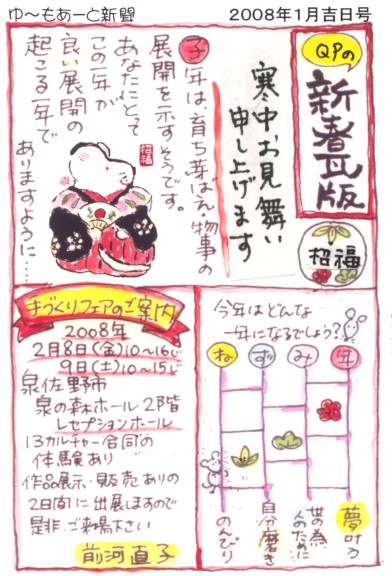 ゆ〜もあーと新聞
2008年1月吉日号
QPの
新春瓦版
招福
寒中お見舞い
申し上げます
子年は、育ち芽ばえ・物事の
展開を示すそうです。
あなたにとって
この一年が
良い展開の
起こる一年で
ありますように…
招福
手づくりフェアのご案内
2008年
2月8日(金)10〜16じ
9日(土)10〜15じ
泉佐野市
泉の森ホール2階
レセプションホール
13カルチャー合同の
体験あり
作品展示・販売ありの
2日間に出展しますので
是非ご来場下さい
前河直子
今年はどんな
一年になるでしょう?
ね
ず
み
年
のんびり
自分磨き
世の為
人のために
夢叶う